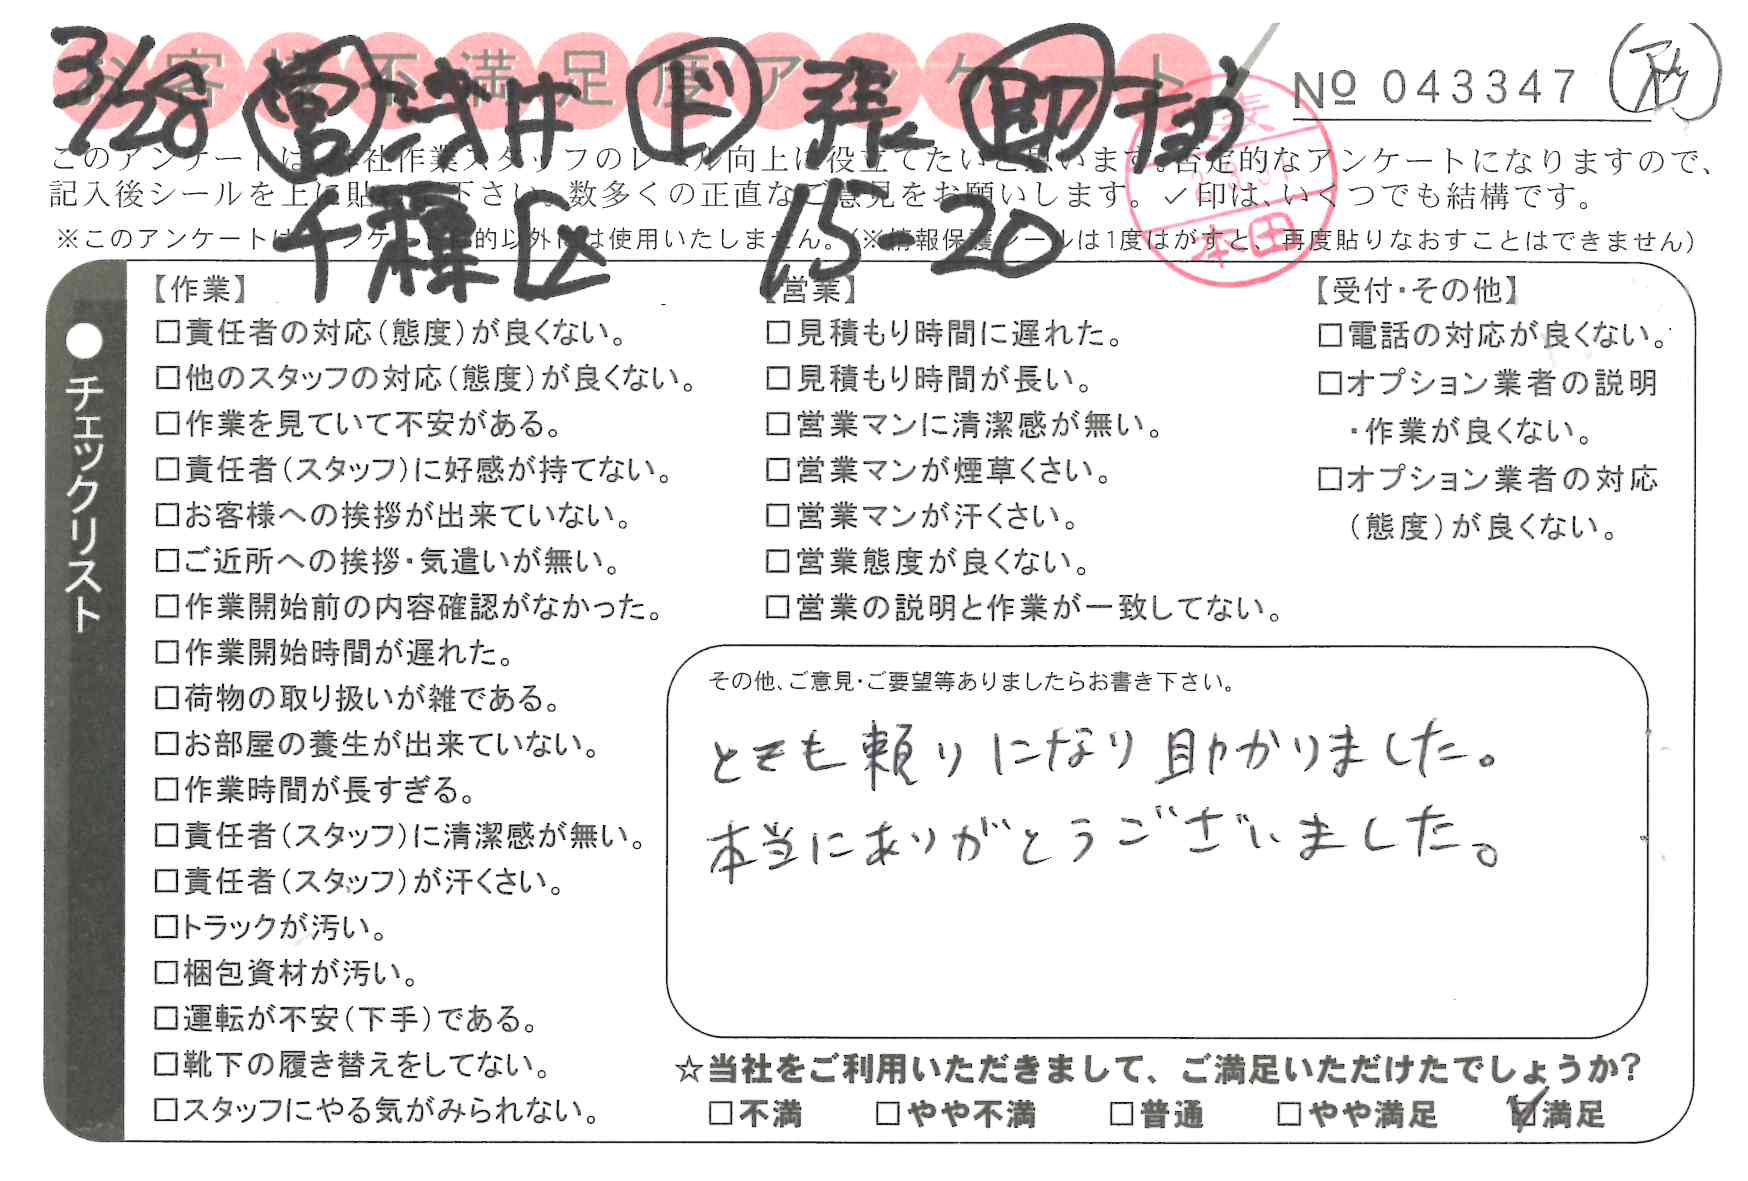 お客様不満足度アンケート
3/28 営 浅井 ド 張 助
No 043347
このアンケートは、弊社作業スタッフのレベル向上に役立てたいと思います。否定的なアンケートになりますので、
記入後シールを上に貼って下さい。数多くの正直なご意見をお願いします。✓印は、いくつでも結構です。
千種区 15-20
本田
※このアンケートはアンケート目的以外には使用いたしません。(※情報保護シールは1度はがすと、再度貼りなおすことはできません)
●チェックリスト
【作業】
□責任者の対応(態度)が良くない。
□他のスタッフの対応(態度)が良くない。
□作業を見ていて不安がある。
□責任者(スタッフ)に好感が持てない。
□お客様への挨拶が出来ていない。
□ご近所への挨拶・気遣いが無い。
□作業開始前の内容確認がなかった。
□作業開始時間が遅れた。
□荷物の取り扱いが雑である。
□お部屋の養生が出来ていない。
□作業時間が長すぎる。
□責任者(スタッフ)に清潔感が無い。
□責任者(スタッフ)が汗くさい。
□トラックが汚い。
□梱包資材が汚い。
□運転が不安(下手)である。
□靴下の履き替えをしてない。
□スタッフにやる気がみられない。
【営業】
□見積もり時間に遅れた。
□見積もり時間が長い。
□営業マンに清潔感が無い。
□営業マンが煙草くさい。
□営業マンが汗くさい。
□営業態度が良くない。
□営業の説明と作業が一致してない。
【受付・その他】
□電話の対応が良くない。
□オプション業者の説明
・作業が良くない。
□オプション業者の対応
(態度)が良くない。
その他、ご意見・ご要望等ありましたらお書き下さい。
とても頼りになり助かりました。
本当にありがとうございました。
☆当社をご利用いただきまして、ご満足いただけたでしょうか?
□不満 □やや不満 □普通 □やや満足 ☑満足